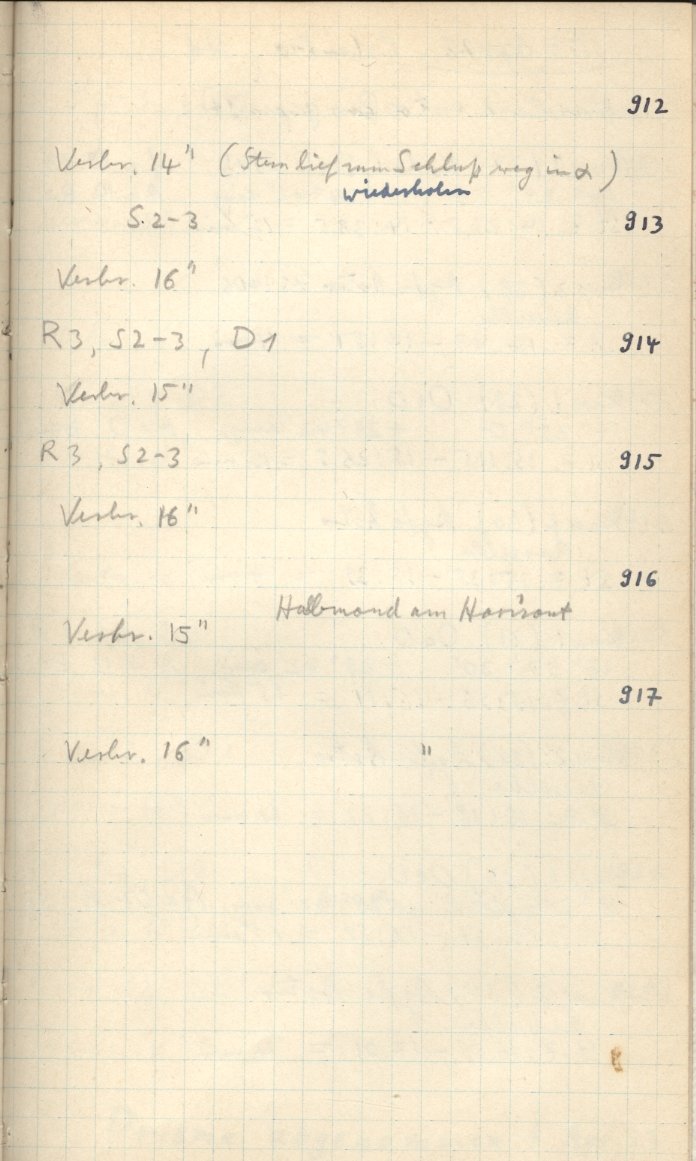 912
Verbr. 14" (Stern lief zum Schluß weg in α)
wiederholen
S. 2-3 913
Verbr. 16"
R3, S2-3, D1 914
Verbr. 15"
R3, S2-3 915
Verbr. 16"
916
Halbmond am Horizont
Verbr. 15"
917
Verbr. 16" "